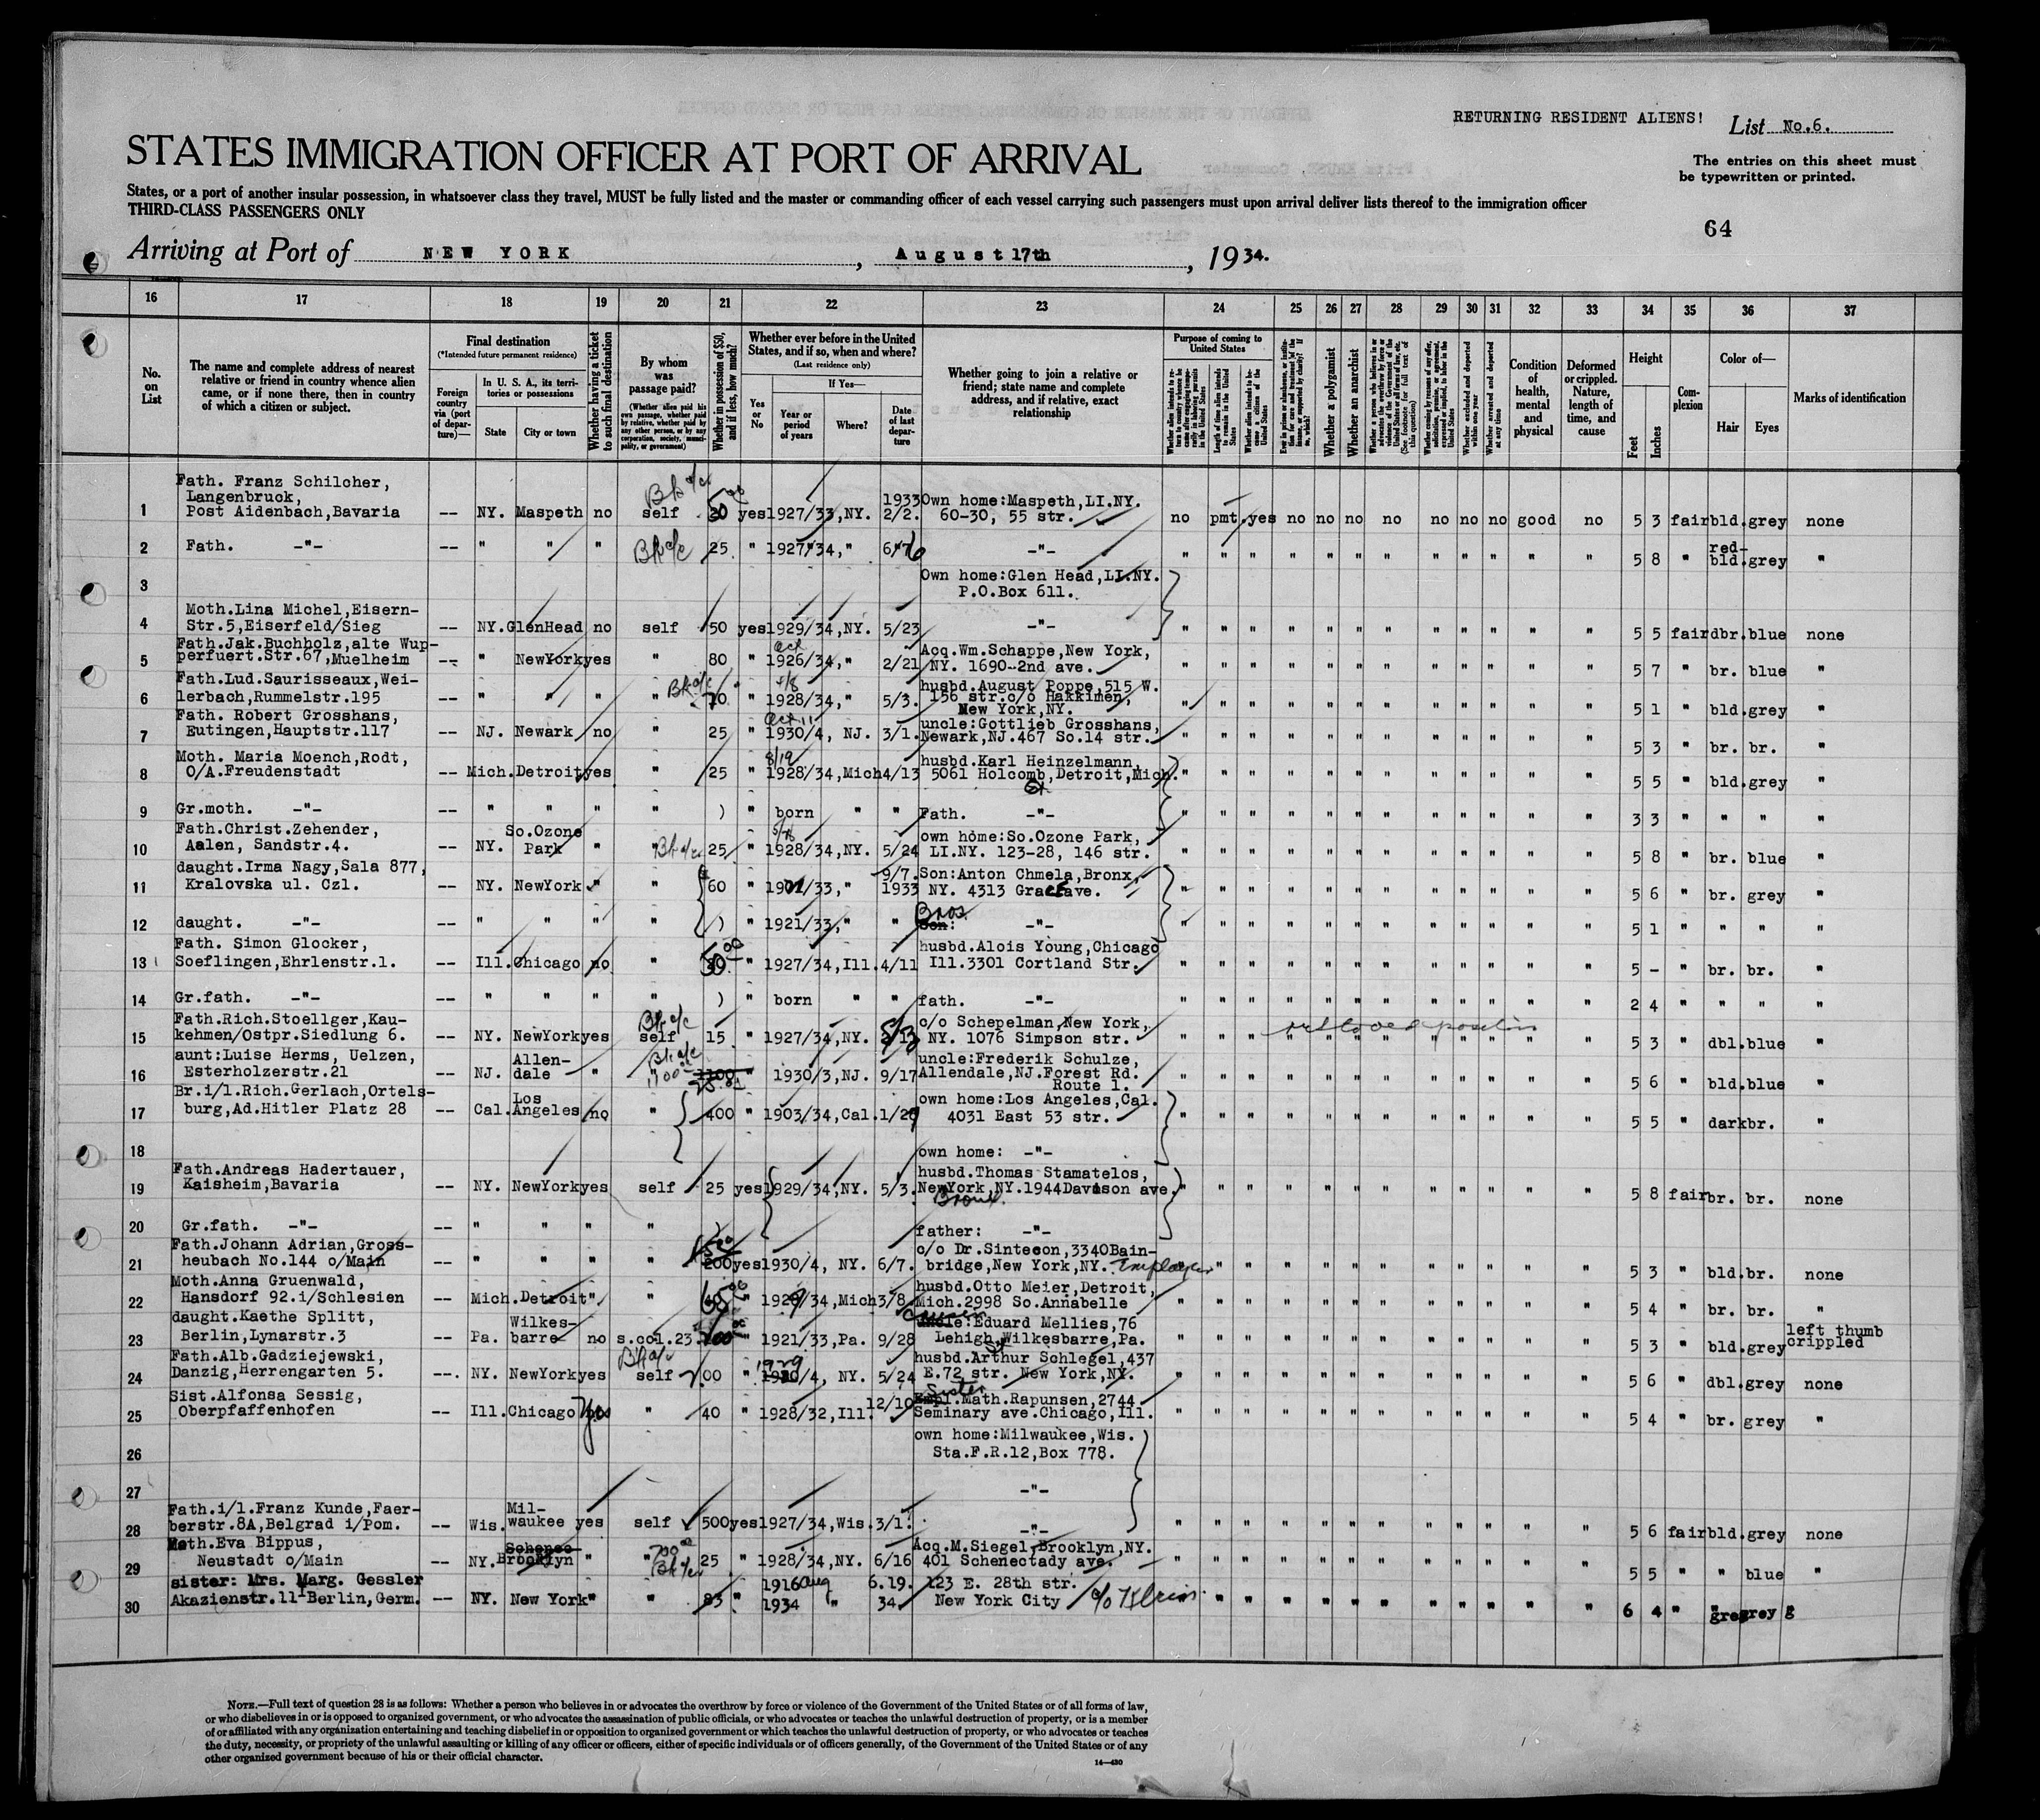 RETURNING RESIDENT ALIENS!
List No.6.
STATES IMMIGRATION OFFICER AT PORT OF ARRIVAL
The entries on this sheet must
be typewritten or printed.
States, or a port of another insular possession, in whatsoever class they travel, MUST be fully listed and the master or commanding officer of each vessel carrying such passengers must upon arrival deliver lists thereof to the immigration officer
THIRD-CLASS PASSENGERS ONLY
64
Arriving at Port of NEW YORK, August 17th, 1934.
16 17 18 19 20 21 22 23 24 25 26 27 28 29 30 31 32 33 34 35 36 37
No. on List
The name and complete address of nearest relative or friend in country whence alien came, or if none there, then in country of which a citizen or subject.
Final destination
(*Intended future permanent residence)
Foreign country via (port of departure)—
In U. S. A., its territories or possessions
State
City or town
Whether having a ticket to such final destination
By whom was passage paid?
(Whether alien paid his own passage, whether paid by relative, whether paid by any other person, or by any corporation, society, municipality, or government)
Whether in possession of $50, and if less, how much?
Whether ever before in the United States, and if so, when and where?
(Last residence only)
Yes or No
If Yes—
Year or period of years
Where?
Date of last departure
Whether going to join a relative or friend; state name and complete address, and if relative, exact relationship
Purpose of coming to United States
Length of time alien intends to remain in the United States
Whether alien intends to become a citizen of the United States
Whether a polygamist
Whether an anarchist
Whether excluded and deported within one year
Whether arrested and deported at any time
Condition of health, mental and physical
Deformed or crippled. Nature, length of time, and cause
Height
Feet
Inches
Complexion
Color of—
Hair
Eyes
Marks of identification
1 Fath. Franz Schilcher, Langenbruck, Post Aidenbach,Bavaria -- NY. Maspeth no self yes 1927/33,NY. 1933 2/2. Own home:Maspeth,LI.NY. 60-30, 55 str. no pmt. yes no no no no no no no good no 5 3 fair bld. grey none
2 Fath. -"- -- " " " 25 " 1927/34, " -"- " " " " " " " " " " " " 5 8 " red-bld. grey "
3 Own home:Glen Head,LI.NY. P.O.Box 611.
4 Moth.Lina Michel,Eisern-Str.5,Eiserfeld/Sieg -- NY. GlenHead no self 50 yes 1929/34,NY. 5/23 -"- " " " " " " " " " " " " 5 5 fair dbr. blue none
5 Fath.Jak.Buchholz,alte Wup-perfuert.Str.67,Muelheim -- " NewYork yes " 80 " 1926/34, " 2/21 Acq.Wm.Schappe,New York, NY. 1690-2nd ave. " " " " " " " " " " " " 5 7 " br. blue "
6 Fath.Lud.Saurisseaux,Wei-lerbach,Rummelstr.195 -- " " " " 70 " 1928/34, " 5/3. husbd.August Poppe,515 W. 156 str.c/o Hakkimen, New York,NY. " " " " " " " " " " " " 5 1 " bld. grey "
7 Fath. Robert Grosshans, Eutingen,Hauptstr.117 -- NJ. Newark no " 25 " 1930/4, NJ. 3/1. uncle:Gottlieb Grosshans, Newark,NJ.467 So.14 str. " " " " " " " " " " " " 5 3 " br. br. "
8 Moth. Maria Moench,Rodt, O/A.Freudenstadt -- Mich. Detroit yes " 25 " 1928/34,Mich 4/13 husbd.Karl Heinzelmann, 5061 Holcomb,Detroit,Mich. " " " " " " " " " " " " 5 5 " bld. grey "
9 Gr.moth. -"- -- " " " " ) " born " " Father. -"- " " " " " " " " " " " " 3 3 " " " "
10 Fath.Christ.Zehender, Aalen, Sandstr.4. -- NY. So.Ozone Park " " 25 " 1928/34,NY. 5/24 own home:So.Ozone Park, LI.NY. 123-28, 146 str. " " " " " " " " " " " " 5 8 " br. blue "
11 daught.Irma Nagy,Sala 877, Kralovska ul. Czl. -- NY. NewYork " " 60 " " 9/7. 1933 Son:Anton Chmela,Bronx, NY. 4313 Grace ave. " " " " " " " " " " " " 5 6 " br. grey "
12 daught. -"- -- " " " " ) " 1921/33, " " Bros -"- " " " " " " " " " " " " 5 1 " " " "
13 Fath. Simon Glocker, Soeflingen,Ehrlenstr.1. -- Ill. Chicago no " " 1927/34,Ill. 4/11 husbd.Alois Young,Chicago Ill.3301 Cortland Str. " " " " " " " " " " " " 5 - " br. br. "
14 Gr.fath. -"- -- " " " " ) " born " " fath. -"- " " " " " " " " " " " " 2 4 " " " "
15 Fath.Rich.Stoellger,Kau-kehmen/Ostpr.Siedlung 6. -- NY. NewYork yes self 15 " 1927/34,NY. c/o Schepelman,New York, NY. 1076 Simpson str. " " " " " " " " " " " " 5 3 " dbl. blue "
16 aunt:Luise Herms, Uelzen, Esterholzerstr.21 -- NJ. Allen-dale " " 1930/3,NJ. 9/17 uncle:Frederik Schulze, Allendale,NJ.Forest Rd. Route 1. " " " " " " " " " " " " 5 6 " bld. blue "
17 Br.i/l.Rich.Gerlach,Ortels-burg,Ad.Hitler Platz 28 -- Cal. Los Angeles no " 400 " 1903/34,Cal. own home:Los Angeles,Cal. 4031 East 53 str. " " " " " " " " " " " " 5 5 " dark br. "
18 own home: -"-
19 Fath.Andreas Hadertauer, Kaisheim,Bavaria -- NY. NewYork yes self 25 yes 1929/34,NY. 5/3. husbd.Thomas Stamatelos, NewYork NY.1944Davidson ave. Bronx. " " " " " " " " " " " " 5 8 fair br. br. none
20 Gr.fath. -"- -- " " " " ) father: -"-
21 Fath.Johann Adrian,Gross-heubach No.144 o/Main -- " " " " 200 yes 1930/4, NY. 6/7. c/o Dr.Sintecon,3340Bain-bridge,New York,NY. Employer " " " " " " " " " " " " 5 3 " bld. br. none
22 Moth.Anna Gruenwald, Hansdorf 92.i/Schlesien -- Mich. Detroit " " " Mich 3/8 husbd.Otto Meier,Detroit, Mich.2998 So.Annabelle " " " " " " " " " " " " 5 4 " br. br. "
23 daught.Kaethe Splitt, Berlin,Lynarstr.3 -- Pa. Wilkes-barre no s.col.23. " 1921/33,Pa. 9/28 :Eduard Mellies,76 Lehigh St Wilkesbarre,Pa. " " " " " " " " " " " " 5 3 " bld. grey left thumb crippled
24 Fath.Alb.Gadziejewski, Danzig,Herrengarten 5. --. NY. NewYork yes self " 1929 /4, NY. 5/24 husbd.Arthur Schlegel,437 E.72 str. New York,NY. " " " " " " " " " " " " 5 6 " dbl. grey none
25 Sist.Alfonsa Sessig, Oberpfaffenhofen -- Ill. Chicago yes " 40 " 1928/32,Ill. 12/10 Sister Math.Rapunsen,2744 Seminary ave.Chicago,Ill. " " " " " " " " " " " " 5 4 " br. grey "
26 own home:Milwaukee,Wis. Sta.F.R.12,Box 778.
27 -"-
28 Fath.i/l.Franz Kunde,Faer-berstr.8A,Belgrad i/Pom. -- Wis. Mil-waukee yes self 500 yes 1927/34,Wis. 3/1. -"- " " " " " " " " " " " " 5 6 fair bld. grey none
29 Moth.Eva Bippus, Neustadt o/Main -- NY. Brooklyn " " 25 " 1928/34,NY. 6/16 Acq.M.Siegel,Brooklyn,NY. 401 Schenectady ave. " " " " " " " " " " " " 5 5 " " blue "
30 sister: Mrs. Marg. Gessler Akazienstr.11 Berlin,Germ. -- NY. New York " " 83 " 1916 Aug 1934 " 6.19. 34. 123 E. 28th str. New York City c/o Klein " " " " " " " " " " " " 6 4 " grey
NOTE.—Full text of question 28 is as follows: Whether a person who believes in or advocates the overthrow by force or violence of the Government of the United States or of all forms of law,
or who disbelieves in or is opposed to organized government, or who advocates the assassination of public officials, or who advocates or teaches the unlawful destruction of property, or is a member
of or affiliated with any organization entertaining and teaching disbelief in or opposition to organized government or which teaches the unlawful destruction of property, or who advocates or teaches
the duty, necessity, or propriety of the unlawful assaulting or killing of any officer or officers, either of specific individuals or of officers generally, of the Government of the United States or of any
other organized government because of his or their official character.
14—430